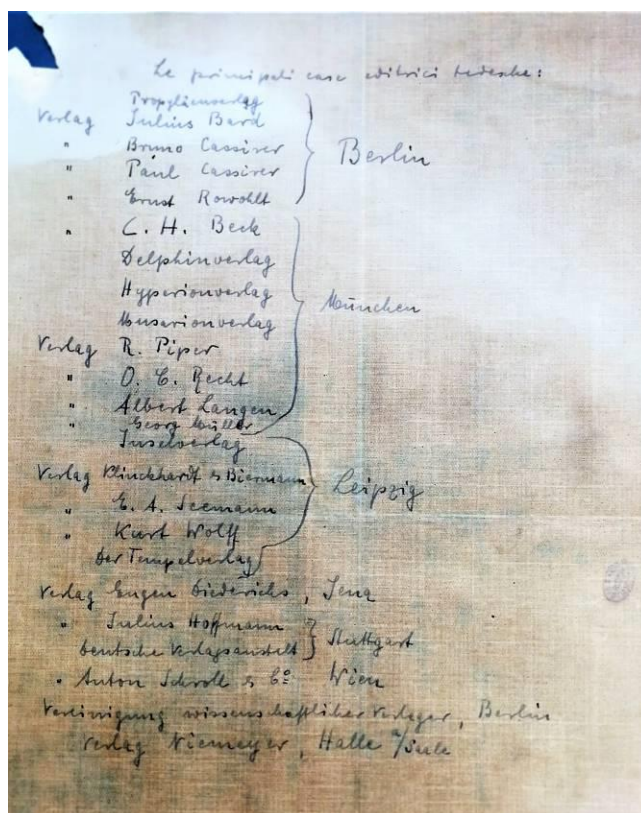 Le principali case editrici tedesche:
Propyläenverlag
Verlag Julius Bard
" Bruno Cassirer
" Paul Cassirer
" Ernst Rowohlt
} Berlin
" C. H. Beck
Delphinverlag
Hyperionverlag
Musarionverlag
Verlag R. Piper
" O. C. Recht
" Albert Langen
" Georg Müller
} München
Inselverlag
Verlag Klinckhardt & Biermann
" E. A. Seemann
" Kurt Wolff
Der Tempelverlag
} Leipzig
Verlag Eugen Diederichs, Jena
" Julius Hoffmann
Deutsche Verlagsanstalt
} Stuttgart
" Anton Schroll & Co Wien
Vereinigung wissenschaftlicher Verleger, Berlin
Verlag Niemeyer, Halle a/Saale